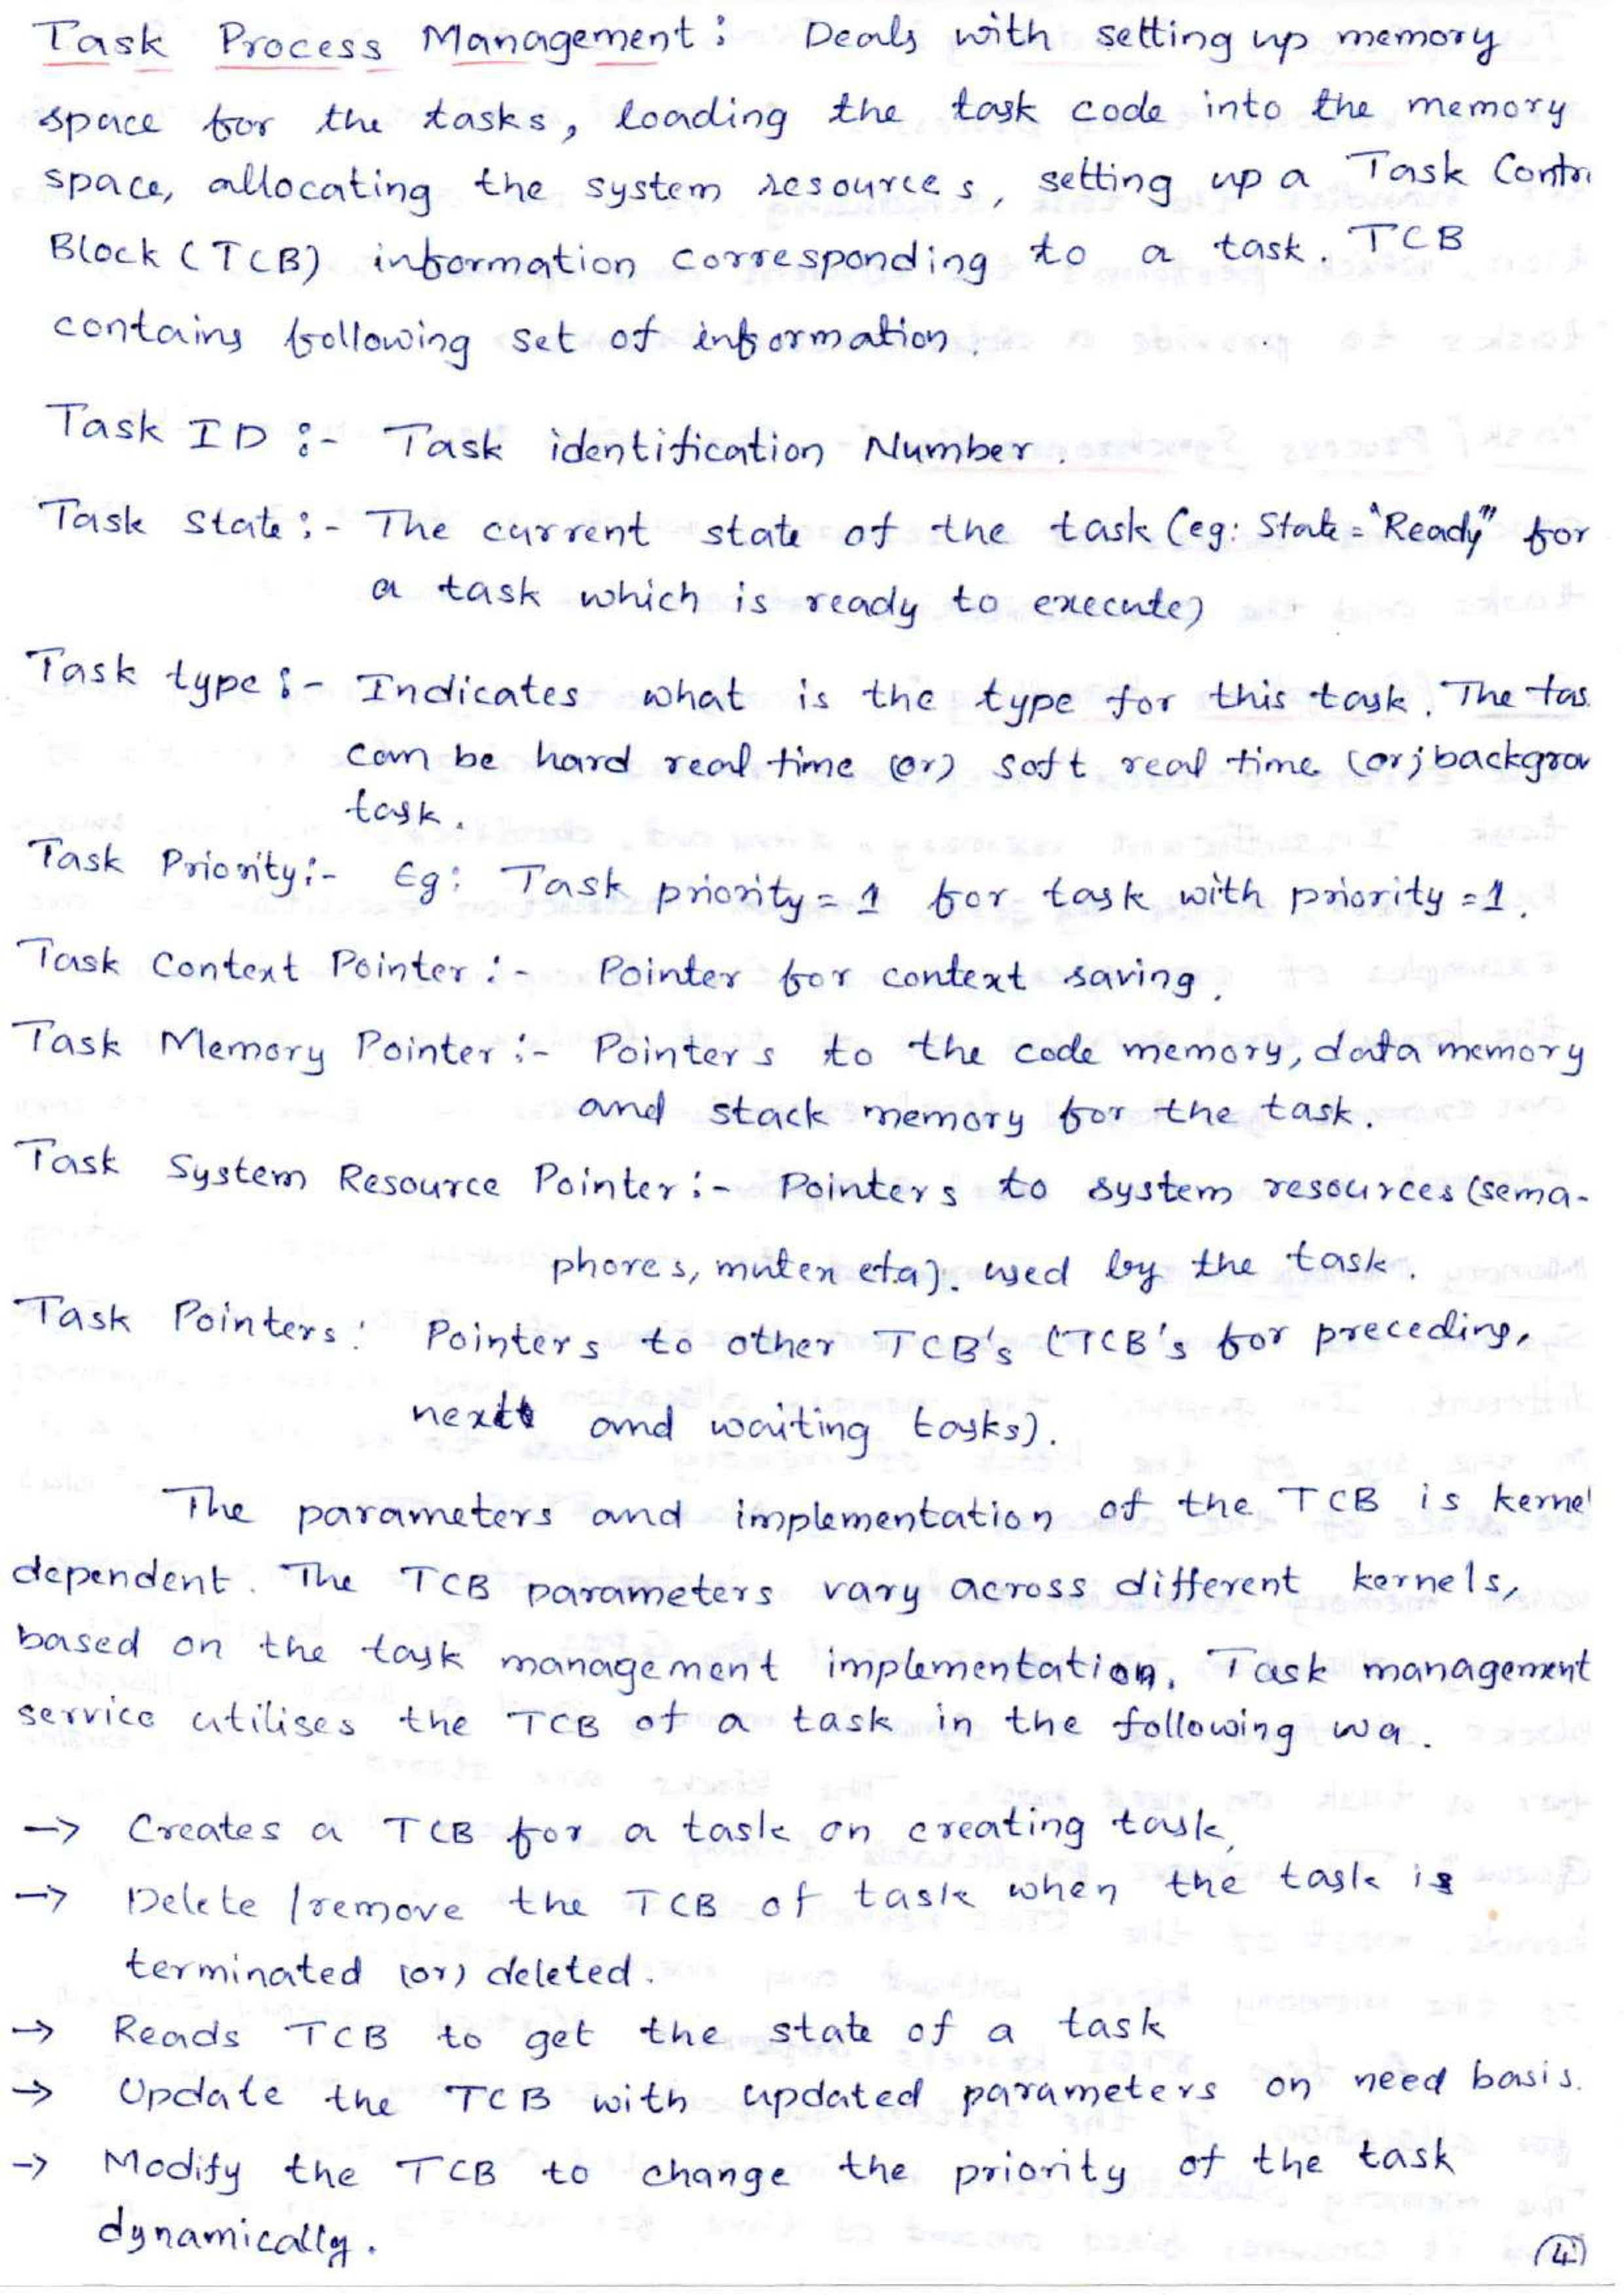 Task Process Management: Deals with setting up memory
space for the tasks, loading the task code into the memory
space, allocating the system resources, setting up a Task Contr
Block (TCB) information corresponding to a task. TCB
contains following set of information.
Task ID :- Task identification Number.
Task State :- The current state of the task (eg: State = "Ready" for
a task which is ready to execute)
Task type :- Indicates what is the type for this task. The tas
can be hard real time (or) soft real time (or) backgrou
task.
Task Priority :- Eg: Task priority = 1 for task with priority = 1.
Task Context Pointer :- Pointer for context saving.
Task Memory Pointer :- Pointers to the code memory, data memory
and stack memory for the task.
Task System Resource Pointer :- Pointers to system resources (sema-
phores, mutex etc). used by the task.
Task Pointers : Pointers to other TCB's (TCB's for preceding,
next and waiting tasks).
The parameters and implementation of the TCB is kernel
dependent. The TCB parameters vary across different kernels,
based on the task management implementation. Task management
service utilises the TCB of a task in the following wa.
→ Creates a TCB for a task on creating task,
→ Delete /remove the TCB of task when the task is
terminated (or) deleted.
→ Reads TCB to get the state of a task
→ Update the TCB with updated parameters on need basis.
→ Modify the TCB to change the priority of the task
dynamically.
4